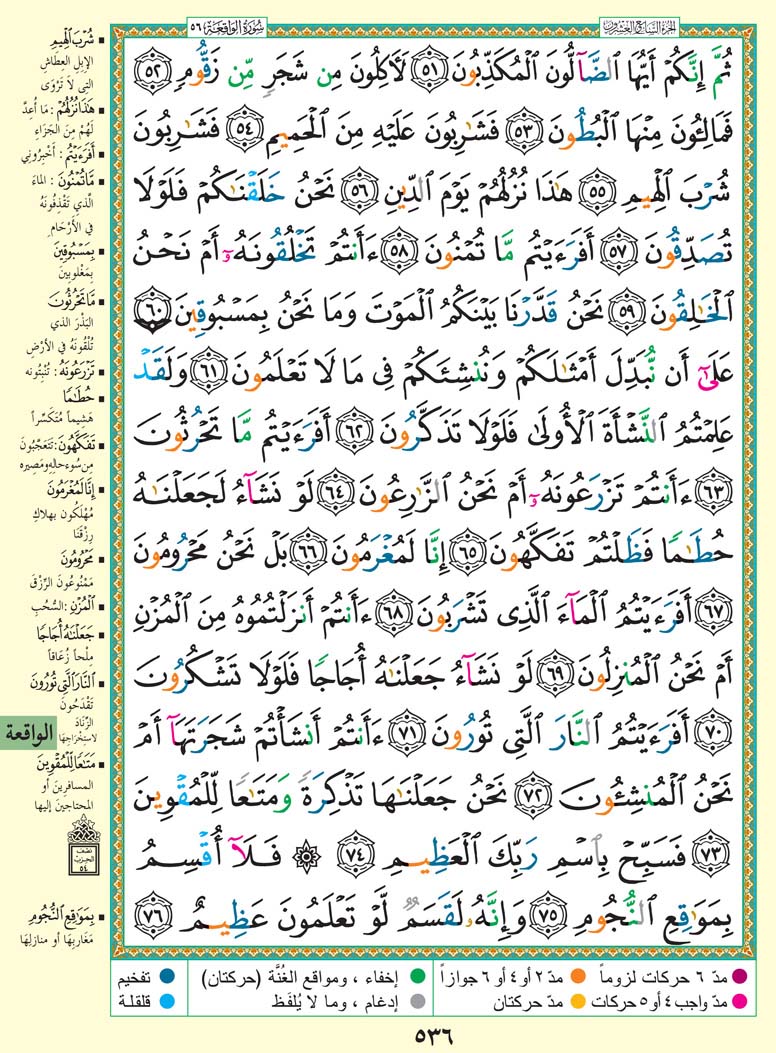 الجزء السابع والعشرون
سورة الواقعة ٥٦
ثُمَّ إِنَّكُمْ أَيُّهَا ٱلضَّآلُّونَ ٱلْمُكَذِّبُونَ ٥١ لَءَاكِلُونَ مِن شَجَرٍ مِّن زَقُّومٍ ٥٢
فَمَالِـُٔونَ مِنْهَا ٱلْبُطُونَ ٥٣ فَشَٰرِبُونَ عَلَيْهِ مِنَ ٱلْحَمِيمِ ٥٤ فَشَٰرِبُونَ
شُرْبَ ٱلْهِيمِ ٥٥ هَٰذَا نُزُلُهُمْ يَوْمَ ٱلدِّينِ ٥٦ نَحْنُ خَلَقْنَٰكُمْ فَلَوْلَا
تُصَدِّقُونَ ٥٧ أَفَرَءَيْتُم مَّا تُمْنُونَ ٥٨ ءَأَنتُمْ تَخْلُقُونَهُۥٓ أَمْ نَحْنُ
ٱلْخَٰلِقُونَ ٥٩ نَحْنُ قَدَّرْنَا بَيْنَكُمُ ٱلْمَوْتَ وَمَا نَحْنُ بِمَسْبُوقِينَ ٦٠
عَلَىٰٓ أَن نُّبَدِّلَ أَمْثَٰلَكُمْ وَنُنشِئَكُمْ فِى مَا لَا تَعْلَمُونَ ٦١ وَلَقَدْ
عَلِمْتُمُ ٱلنَّشْأَةَ ٱلْأُولَىٰ فَلَوْلَا تَذَكَّرُونَ ٦٢ أَفَرَءَيْتُم مَّا تَحْرُثُونَ
٦٣ ءَأَنتُمْ تَزْرَعُونَهُۥٓ أَمْ نَحْنُ ٱلزَّٰرِعُونَ ٦٤ لَوْ نَشَآءُ لَجَعَلْنَٰهُ
حُطَٰمًا فَظَلْتُمْ تَفَكَّهُونَ ٦٥ إِنَّا لَمُغْرَمُونَ ٦٦ بَلْ نَحْنُ مَحْرُومُونَ
٦٧ أَفَرَءَيْتُمُ ٱلْمَآءَ ٱلَّذِى تَشْرَبُونَ ٦٨ ءَأَنتُمْ أَنزَلْتُمُوهُ مِنَ ٱلْمُزْنِ
أَمْ نَحْنُ ٱلْمُنزِلُونَ ٦٩ لَوْ نَشَآءُ جَعَلْنَٰهُ أُجَاجًا فَلَوْلَا تَشْكُرُونَ
٧٠ أَفَرَءَيْتُمُ ٱلنَّارَ ٱلَّتِى تُورُونَ ٧١ ءَأَنتُمْ أَنشَأْتُمْ شَجَرَتَهَآ أَمْ
نَحْنُ ٱلْمُنشِـُٔونَ ٧٢ نَحْنُ جَعَلْنَٰهَا تَذْكِرَةً وَمَتَٰعًا لِّلْمُقْوِينَ
٧٣ فَسَبِّحْ بِٱسْمِ رَبِّكَ ٱلْعَظِيمِ ٧٤ ۞ فَلَآ أُقْسِمُ
بِمَوَٰقِعِ ٱلنُّجُومِ ٧٥ وَإِنَّهُۥ لَقَسَمٌ لَّوْ تَعْلَمُونَ عَظِيمٌ ٧٦
شُرْبَ ٱلْهِيمِ
الإبل العطاش
التى لا تَرْوَى
هَٰذَا نُزُلُهُمْ : مَا أُعِدَّ
لَهُمْ مِنَ الجَزَاءِ
أَفَرَءَيْتُم : أَخْبِرُونِي
مَّا تُمْنُونَ : الماءَ
الَّذي تَقْذِفُونَهُ
فِي الأَرْحَام
بِمَسْبُوقِينَ
بِمَغْلُوبِينَ
مَّا تَحْرُثُونَ
البَذْرَ الذي
تُلْقُونَهُ فِي الأَرْضِ
تَزْرَعُونَهُ : تُنْبِتُونَه
حُطَٰمًا
هَشِيماً مُتَكَسِّراً
تَفَكَّهُونَ : تَتَعَجَّبُونَ
مِن سُوءِ حالِه ومَصِيرِه
إِنَّا لَمُغْرَمُونَ
مُهْلَكُون بِهلاكِ
رِزْقِنَا
مَحْرُومُونَ
مَمْنُوعُونَ الرِّزْقَ
ٱلْمُزْنِ : السُّحُبِ
جَعَلْنَٰهُ أُجَاجًا
مِلْحاً زُعَاقاً
ٱلنَّارَ ٱلَّتِى تُورُونَ
تَقْدَحُونَ
الزِّنَادَ
لاستِخْرَاجِهَا
الواقعة
مَتَٰعًا لِّلْمُقْوِينَ
المسافرين أو
المحتاجين إليها
نصف
الحزب
٥٤
بِمَوَٰقِعِ ٱلنُّجُومِ
مَغَارِبِهَا أو منازلِهَا
مدّ ٦ حركات لزوماً
مدّ ٢ أو ٤ أو ٦ جوازاً
إخفاء ، ومواقع الغُنَّة (حركتان)
تفخيم
مدّ واجب ٤ أو ٥ حركات
مدّ حركتان
إدغام ، وما لا يُلفَظ
قلقلة
٥٣٦